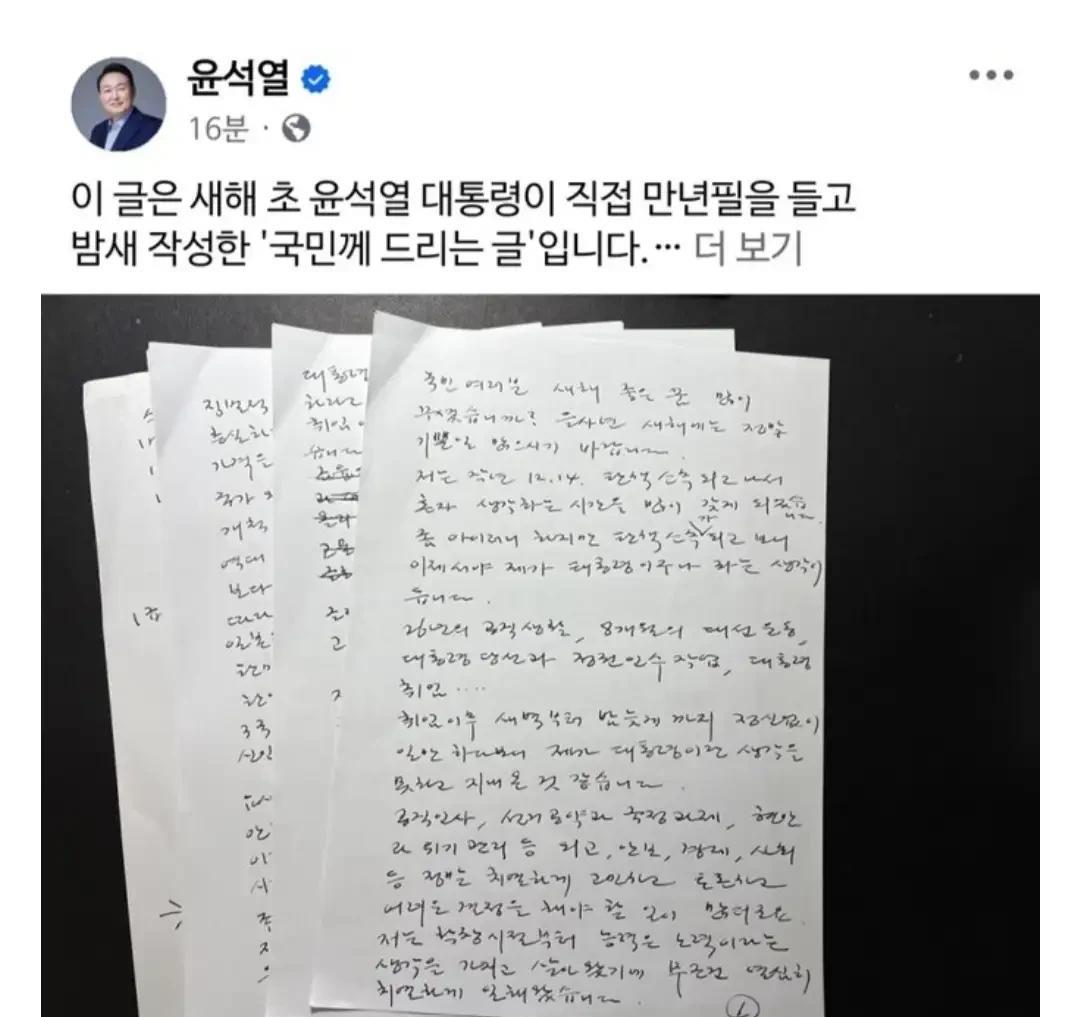 윤석열
16분
이 글은 새해 초 윤석열 대통령이 직접 만년필을 들고
밤새 작성한 '국민께 드리는 글'입니다.… 더 보기
국민 여러분 새해 좋은 꿈 많이
꾸셨습니까? 을사년 새해에는 정말
기쁜일 많으시기 바랍니다.
저는 작년 12.14. 탄핵 소추 되고 나서
혼자 생각하는 시간을 많이 갖게 되었습니다.
좀 아이러니 하지만 탄핵 소추가 되고 보니
이제서야 제가 대통령이구나 하는 생각이
듭니다.
26년의 공직생활, 8개월의 대선 운동,
대통령 당선과 정권인수 작업, 대통령
취임....
취임이후 새벽부터 밤늦게 까지 정신없이
일만 하다보니 제가 대통령이란 생각을
못하고 지내온 것 같습니다.
공직인사, 선거공약과 국정과제, 현안
과 위기관리 등 외교, 안보, 경제, 사회
등 정말 치열하게 고민하고 토론하고
어려운 결정을 해야 할 일이 많더군요.
저는 학창시절부터 능력은 노력이라는
생각을 가지고 살아왔기에 무조건 열심히
치열하게 일해왔습니다.
대통령
취임
가격은
국가
개척
역대
보다